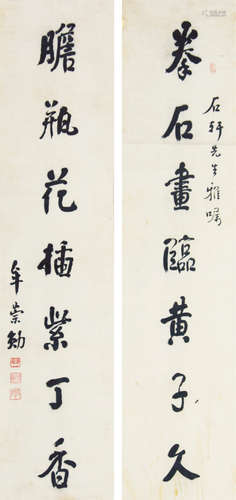 拳石畫臨黃子久
石軒先生雅嘱
膽瓶花插紫丁香
牟崇勛